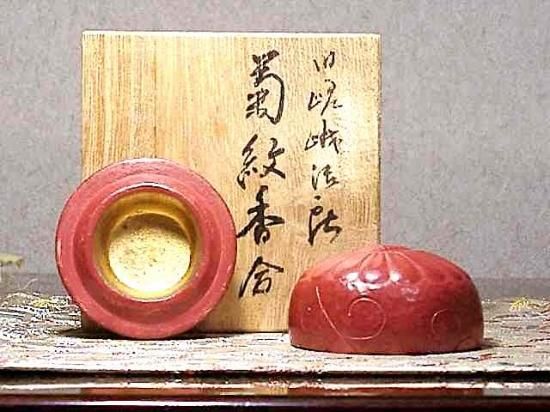 旧嵯峨法話
菊紋香合